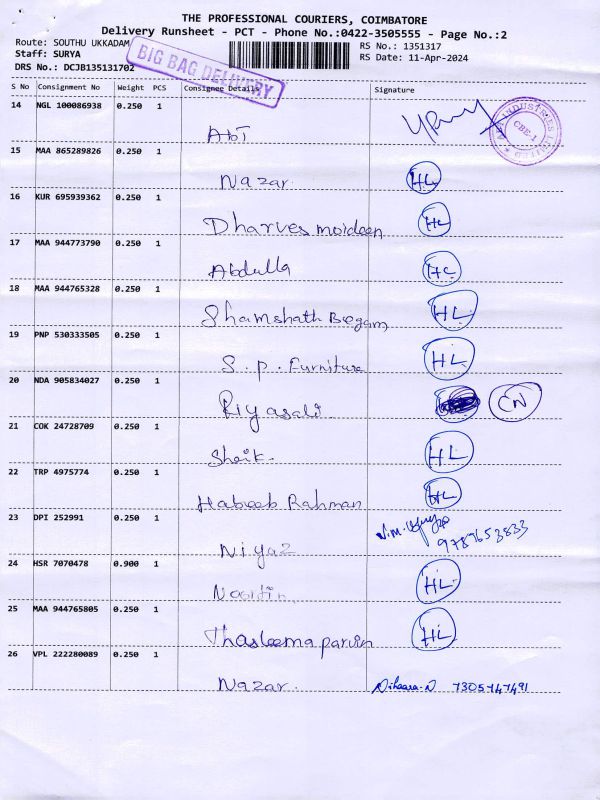 THE PROFESSIONAL COURIERS, COIMBATORE
Delivery Runsheet - PCT - Phone No.:0422-3505555 - Page No.:2
Route: SOUTHU UKKADAM
RS No.: 1351317
Staff: SURYA
RS Date: 11-Apr-2024
DRS No.: DCJB135131702
BIG BAG DELIVERY
S No Consignment No Weight PCS Consignee Details Signature
14 NGL 100086938 0.250 1
INDUSTRIES LIMITED
CBE-1
ABT
15 MAA 865289826 0.250 1
Nazar HL
16 KUR 695939362 0.250 1
Dharves moideen HL
17 MAA 944773790 0.250 1
Abdulla HL
18 MAA 944765328 0.250 1
Shamshath Begam HL
19 PNP 530333505 0.250 1
S.P. Furniture HL
20 NDA 905834027 0.250 1
Riyasali CN
21 COK 24728709 0.250 1
Sheik HL
22 TRP 4975774 0.250 1
Habeeb Rahman HL
23 DPI 252991 0.250 1
Niyaz 9787653833
24 HSR 7070478 0.900 1
HL
25 MAA 944765805 0.250 1
Thasleema parvin HL
26 VPL 222280089 0.250 1
Nazar 7305747491